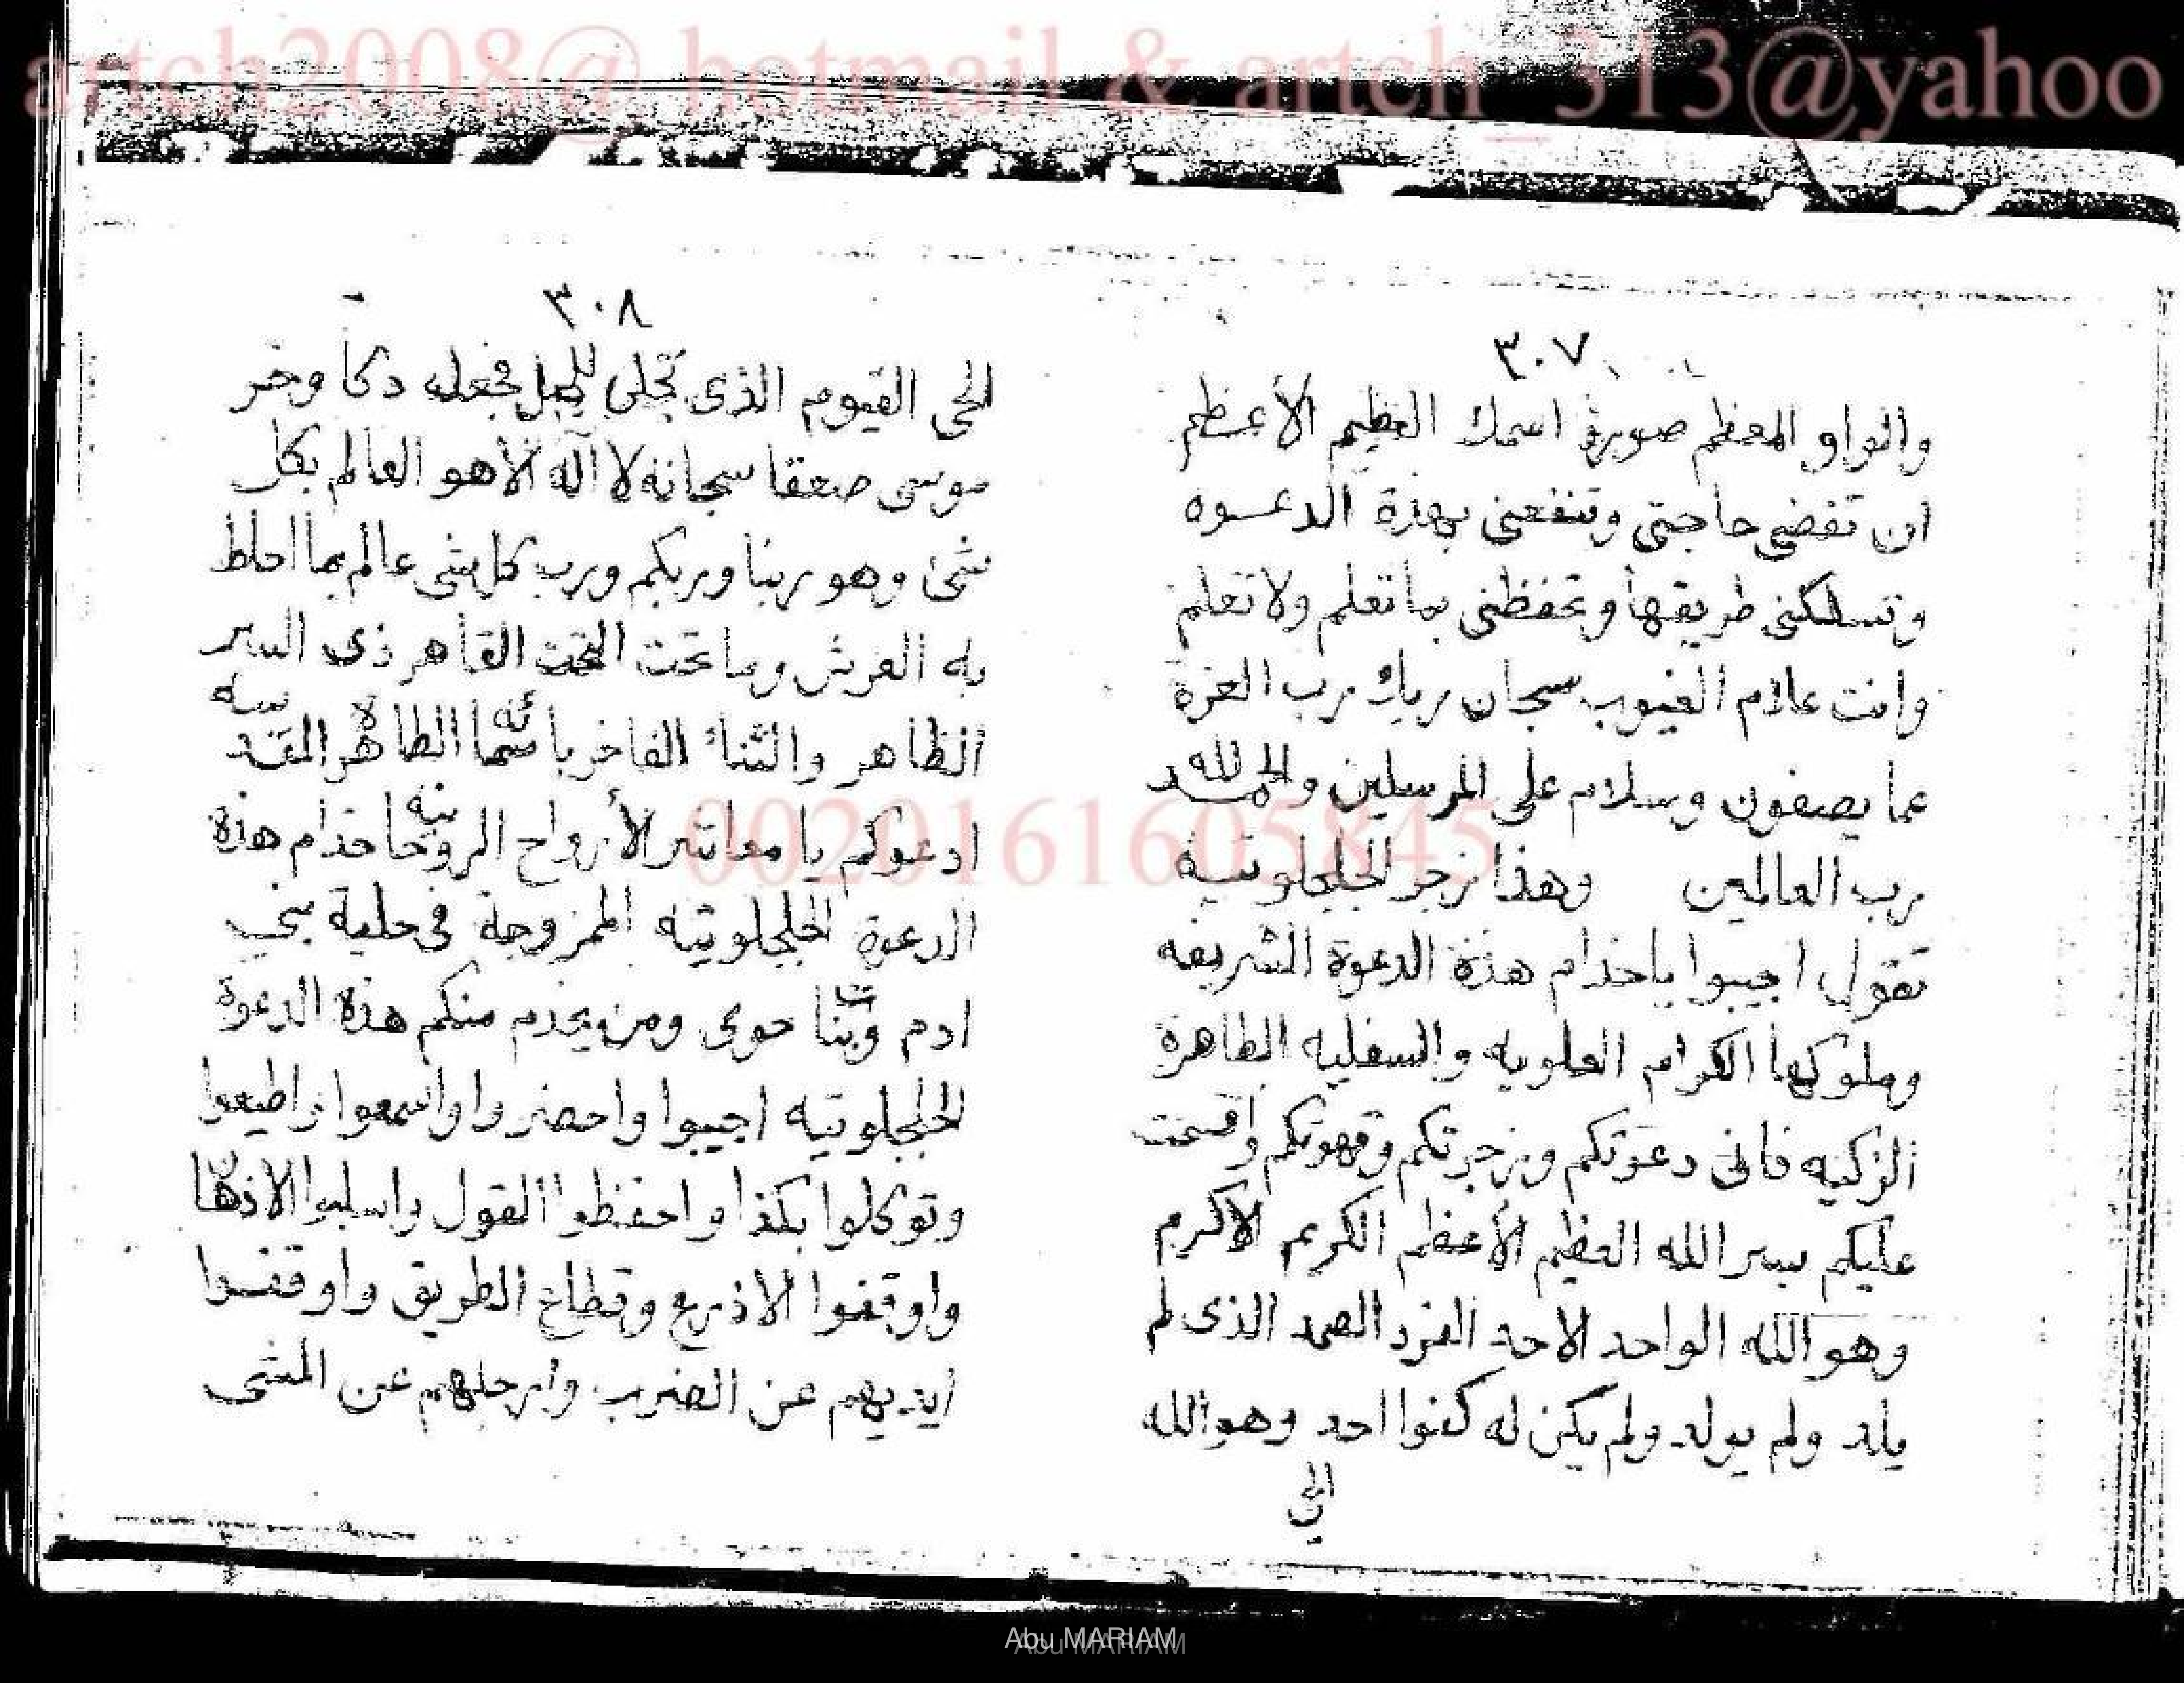 artch2008@ hotmail & artch_313@yahoo
٣٠٧
والواو المعظم صورة اسمك العظيم الأعظم
ان تقضى حاجتى وتنفعنى بهذة الدعوه
وتسلكنى طريقها وتحفظنى بما تعلم ولا تعلم
وانت علام الغيوب سبحان ربك رب العزة
عما يصفون وسلام على المرسلين والحمد لله
رب العالمين وهذا زجر الجلجلوتية
تقول اجيبوا ياخدام هذة الدعوة الشريفه
وملوكها الكرام العلويه والسفليه الطاهرة
الزكيه فانى دعوتكم وزجرتكم وقهوتكم واقسمت
عليكم بسر الله العظيم الأعظم الكريم الاكرم
وهو الله الواحد الاحد الفرد الصمد الذى لم
يلد ولم يولد ولم يكن له كفوا احد وهو الله
الحي
٣٠٨
الحى القيوم الذى تجلى للجبل فجعله دكا وخر
موسى صعقا سبحانه لا اله الا هو العالم بكل
شئ وهو ربنا وربكم ورب كل شى عالم بما احاط
به العرش وما تحت التحت القاهر ذى السر
الظاهر والثناء الفاخر باسمائه الطاهرة المقدسيه
ادعوكم يا معاشر الأرواح الروحانيه خدام هذة
الدعوة الجلجلوتيه الممزوجة فى حلية بنى
ادم وبنات حوى ومن يخدم منكم هذة الدعوة
الجلجلوتيه اجيبوا واحضروا واسمعوا واطيعوا
وتوكلوا بكذا واحفظوا القول واسلبوا الاذهان
واوقفوا الاذرع وقطاع الطريق واوقفوا
ايديهم عن الضرب وأرجلهم عن المشى
0020161605845
Abu MARIAM